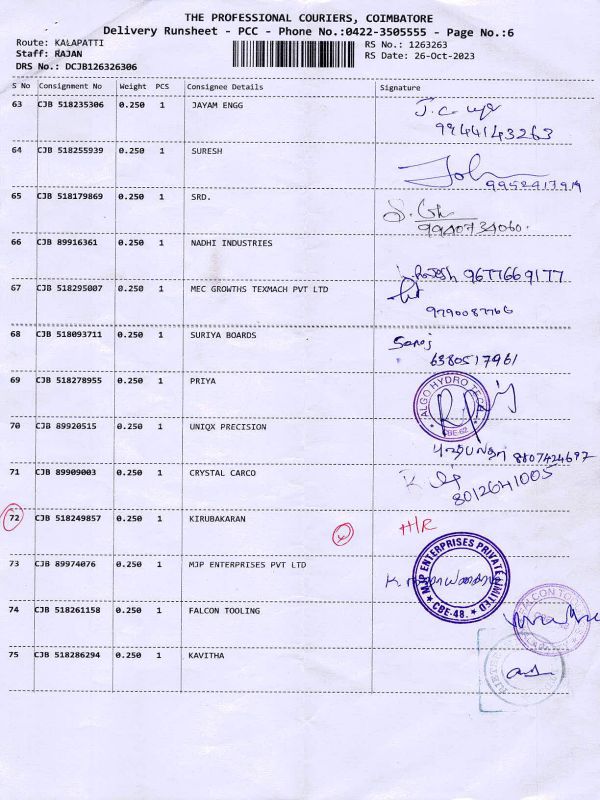 THE PROFESSIONAL COURIERS, COIMBATORE
Delivery Runsheet - PCC - Phone No.:0422-3505555 - Page No.:6
Route: KALAPATTI
RS No.: 1263263
Staff: RAJAN
RS Date: 26-Oct-2023
DRS No.: DCJB126326306
S No Consignment No Weight PCS Consignee Details Signature
63 CJB 518235306 0.250 1 JAYAM ENGG
9944143263
64 CJB 518255939 0.250 1 SURESH John
9952917919
65 CJB 518179869 0.250 1 SRD.
9940734060.
66 CJB 89916361 0.250 1 NADHI INDUSTRIES Rajesh 9677669177
67 CJB 518295007 0.250 1 MEC GROWTHS TEXMACH PVT LTD
9790087766
68 CJB 518093711 0.250 1 SURIYA BOARDS Saroj
6380517961
69 CJB 518278955 0.250 1 PRIYA ALGO HYDRO TECH
CBE-62
70 CJB 89920515 0.250 1 UNIQX PRECISION 8807424697
71 CJB 89909003 0.250 1 CRYSTAL CARCO
8012641005
72 CJB 518249857 0.250 1 KIRUBAKARAN H/R
73 CJB 89974076 0.250 1 MJP ENTERPRISES PVT LTD MJP ENTERPRISES PRIVATE LIMITED
CBE-48.
74 CJB 518261158 0.250 1 FALCON TOOLING FALCON
75 CJB 518286294 0.250 1 KAVITHA